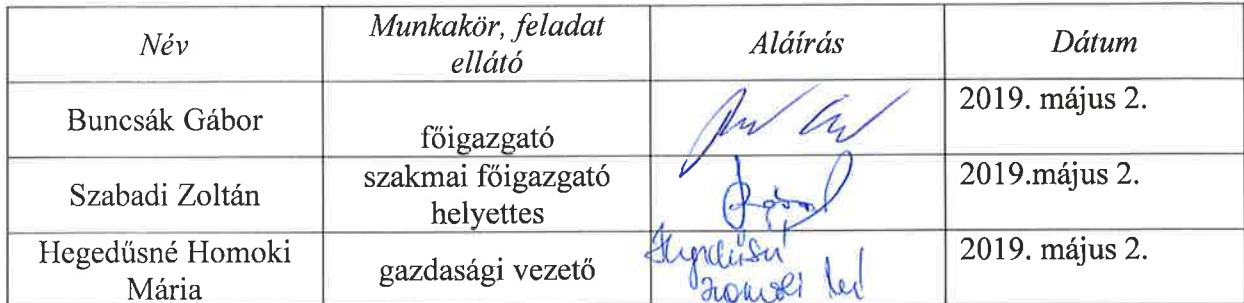 Név
Munkakör, feladat
ellátó
Aláírás
Dátum
Buncsák Gábor
főigazgató
2019. május 2.
Szabadi Zoltán
szakmai főigazgató
helyettes
2019.május 2.
Hegedűsné Homoki
Mária
gazdasági vezető
Hegedűsné
Homoki
2019. május 2.